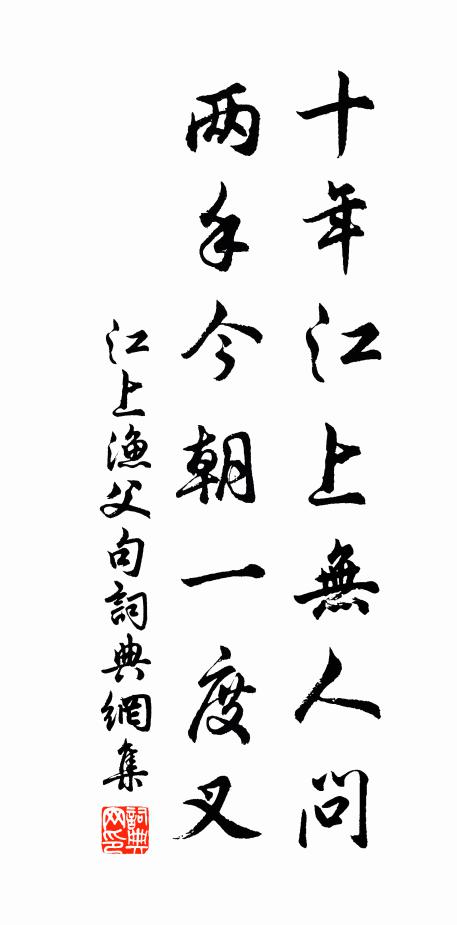 十年江上無人問
两手今朝一度叉
江上漁父句詞典網集
詞典网印